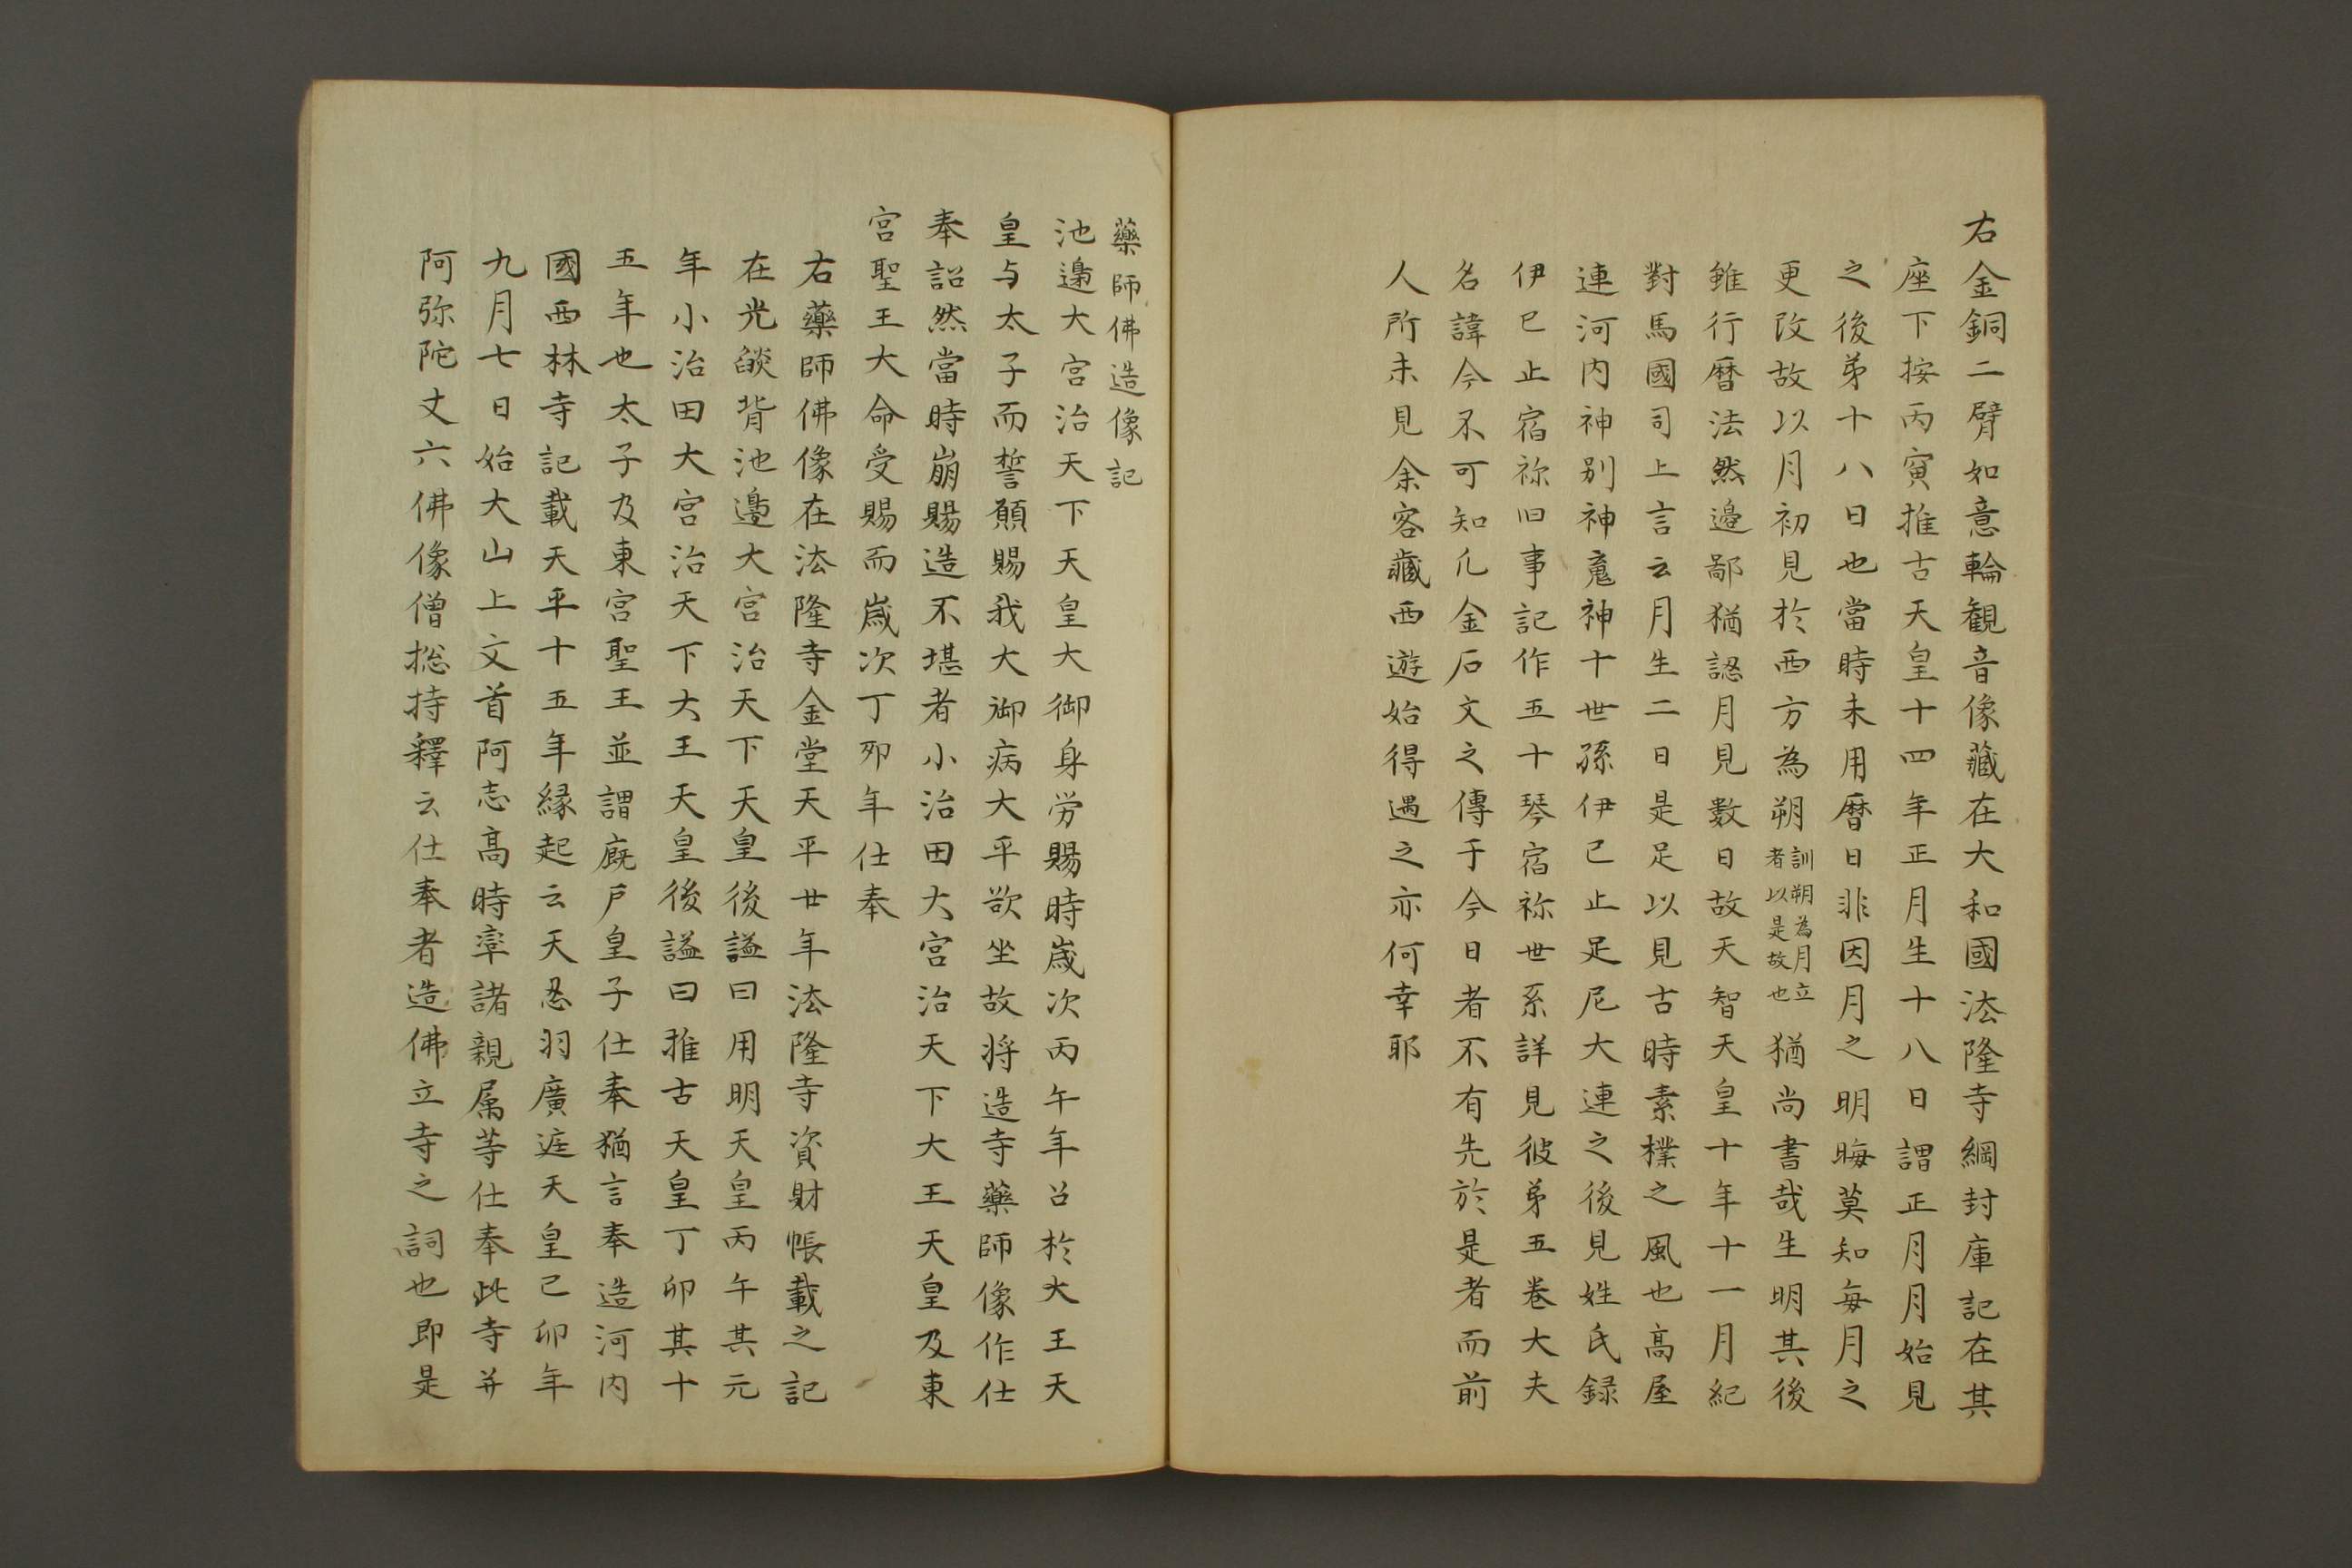 右金銅二臂如意輪観音像藏在大和國法隆寺綱封庫記在其
座下按丙寅推古天皇十四年正月生十八日謂正月月始見
之後苐十八日也當時未用暦日非因月之明晦莫知每月之
更改故以月初見於西方為朔訓朔為月立者以是故也猶尚書哉生明其後
雖行暦法然邉鄙猶認月見數日故天智天皇十年十一月紀
對馬國司上言云月生二日是足以見古時素樸之風也髙屋
連河内神別神䰠神十世孫伊己止足尼大連之後見姓氏録
伊巳止宿祢旧事記作五十琴宿祢世系詳見彼苐五巻大夫
名諱今不可知凡金石文之傳于今日者不有先於是者而前
人所未見余客藏西遊始得遇之亦何幸耶
藥師佛造像記
池邉大宮治天下天皇大御身労賜時歳次丙午年召於大王天
皇与太子而誓願賜我大御病大平欲坐故将造寺藥師像作仕
奉詔然當時崩賜造不堪者小治田大宮治天下大王天皇及東
宮聖王大命受賜而歳次丁夘年仕奉
右藥師佛像在法隆寺金堂天平廿年法隆寺資財帳載之記
在光燄背池邉大宮治天下天皇後謚曰用明天皇丙午其元
年小治田大宮治天下大王天皇後謚曰推古天皇丁卯其十
五年也太子及東宮聖王並謂廐戸皇子仕奉猶言奉造河内
國西林寺記載天平十五年縁起云天忍羽廣庭天皇己卯年
九月七日始大山上文首阿志髙時率諸親属等仕奉此寺并
阿弥陀丈六佛像僧捴持釋云仕奉者造佛立寺之詞也即是